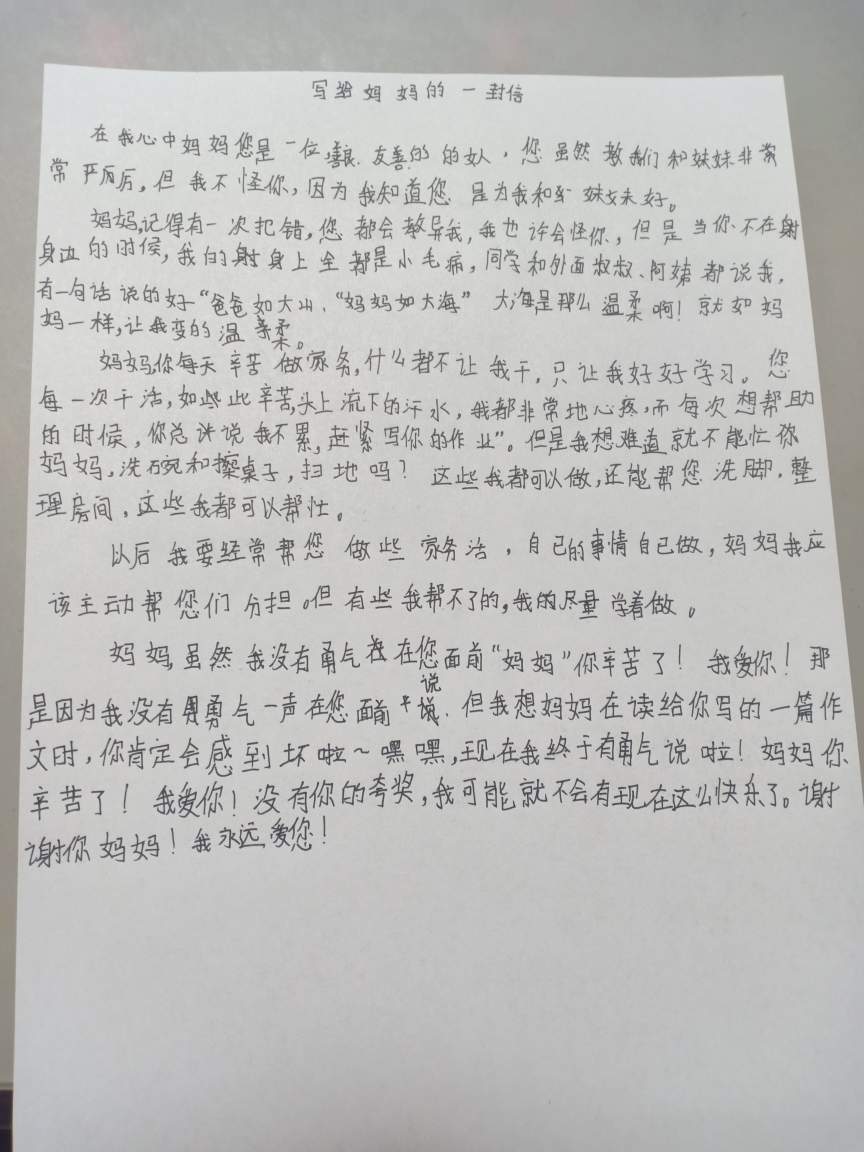 写给妈妈的一封信
在我心中妈妈您是一位,善良.友善的的女人,您虽然教我们和妹妹非常
常严厉,但我不怪你,因为我知道您是为我和妹妹好。
妈妈,记得有一次犯错,您都会教导我,我也许会怪你,但是当你不在射
身边的时候,我的射身上全都是小毛病,同学和外面叔叔、阿姨都说我,
有一句话说的好“爸爸如大山、“妈妈如大海”大海是那么温柔啊!就如妈
妈一样,让我变的温柔。
妈妈,你每天辛苦做家务,什么都不让我干,只让我好好学习。您
每一次干活,如此辛苦,头上流下的汗水,我都非常地心疼,而每次想帮助
的时候,你总说我不累,赶紧写你的作业”。但是我想难道就不能忙你
妈妈,洗碗和擦桌子,扫地吗?这些我都可以做,还能帮您洗脚.整
理房间,这些我都可以帮忙。
以后我要经常帮您做些家务活,自己的事情自己做,妈妈我应
该主动帮您们分担。但有些我帮不了的,我的尽量学着做。
妈妈,虽然我没有勇气在您面前“妈妈”你辛苦了!我爱你!那
是因为我没有勇气一声在您面前说.但我想妈妈在读给你写的一篇作
文时,你肯定会感到坏啦~嘿嘿,现在我终于有勇气说啦!妈妈你
辛苦了!我爱你!没有你的夸奖,我可能就不会有现在这么快乐了。谢
谢你妈妈!我永远爱您!